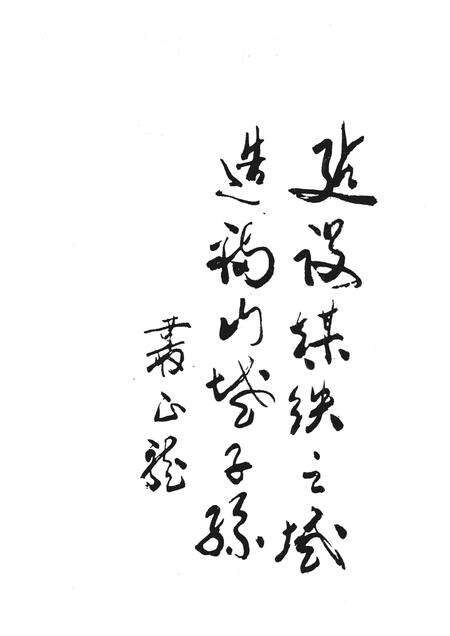 建设煤铁之城
造福山城子孫
叢正龍